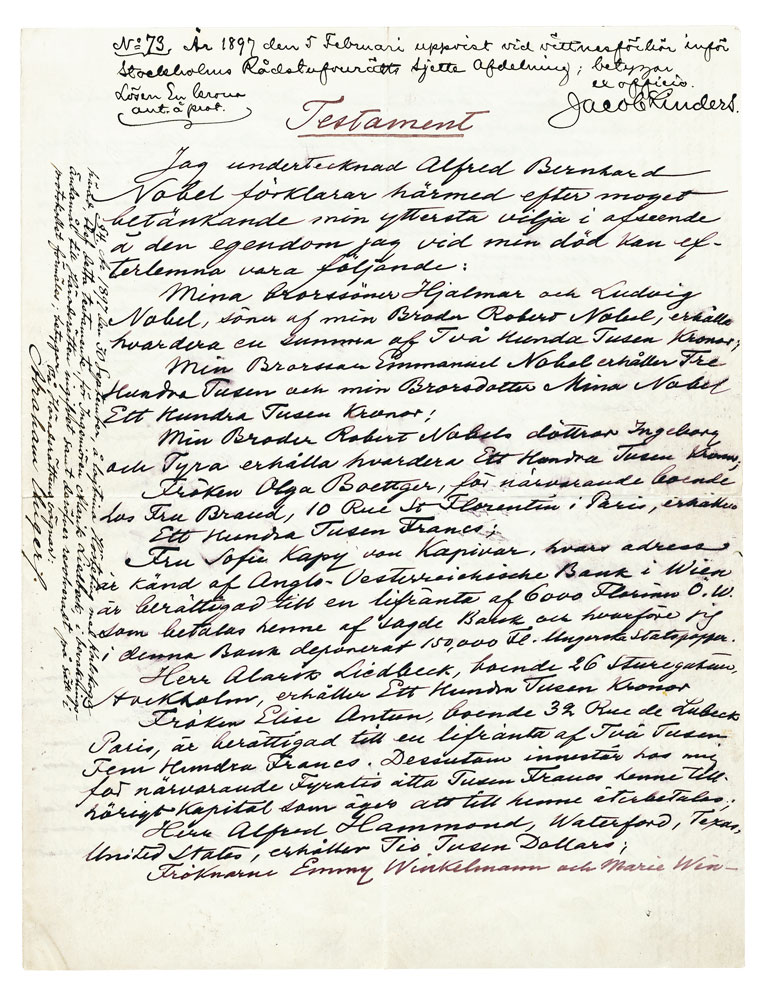 No 73. År 1897 den 5 Februari uppvist vid vittnesförhör inför
Stockholms Rådstufvurätts sjette Afdelning; betygar
Lösen En krona
ex officio.
ant. å prot.
Jacob Enders.
Testament
Jag undertecknad Alfred Bernhard
Nobel förklarar härmed efter moget
betänkande min yttersta vilja i afseende
å den egendom jag vid min död kan ef-
terlemna vara följande:
Mina Brorssöner Hjalmar och Ludvig
Nobel, söner af min Broder Robert Nobel, erhålla
hvardera en summa af Två Hundra Tusen Kronor;
Min Brorsson Emmanuel Nobel erhåller Tre
Hundra Tusen och min Brorsdotter Mina Nobel
Ett Hundra Tusen Kronor;
Min Broder Robert Nobels döttrar Ingeborg
och Tyra erhålla hvardera Ett Hundra Tusen Kronor;
Fröken Olga Boettger, för närvarande boende
hos Fru Brand, 10 Rue St Florentin i Paris, erhåller
Ett Hundra Tusen Francs;
Fru Sofie Kapy von Kapivar, hvars adress
är känd af Anglo-Oesterreichische Bank i Wien
är berättigad till en lifränta af 6000 Florins Ö.W.
som betalas henne af sagde Bank och hvarföre jag
i denna Bank deponerat 150,000 Fl. Ungerska Statspapper.
Herr Alarik Liedbeck, boende 26 Sturegatan,
Stockholm, erhåller Ett Hundra Tusen Kronor
Fröken Elise Antun, boende 32 Rue de Lubeck
Paris, är berättigad till en lifränta af Två Tusen
Fem Hundra Francs. Dessutom innestår hos mig
för närvarande Fyratio åtta Tusen Francs henne till-
hörigt Kapital som äger att till henne återbetalas;
Herr Alfred Hammond, Waterford, Texas,
United States, erhåller Tio Tusen Dollars;
Fröknarne Emmy Winkelmann och Marie Win-